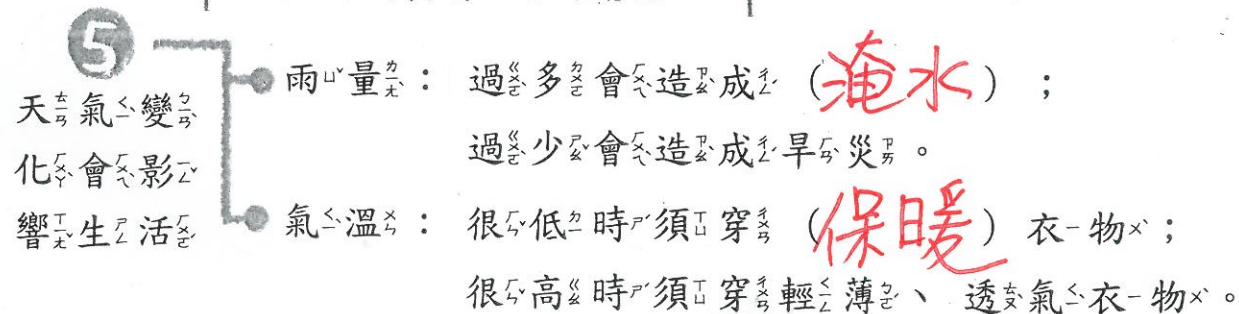 5
天氣變
化會影
響生活
雨量：過多會造成（淹水）；
過少會造成旱災。
氣溫：很低時須穿（保暖）衣物；
很高時須穿輕薄、透氣衣物。